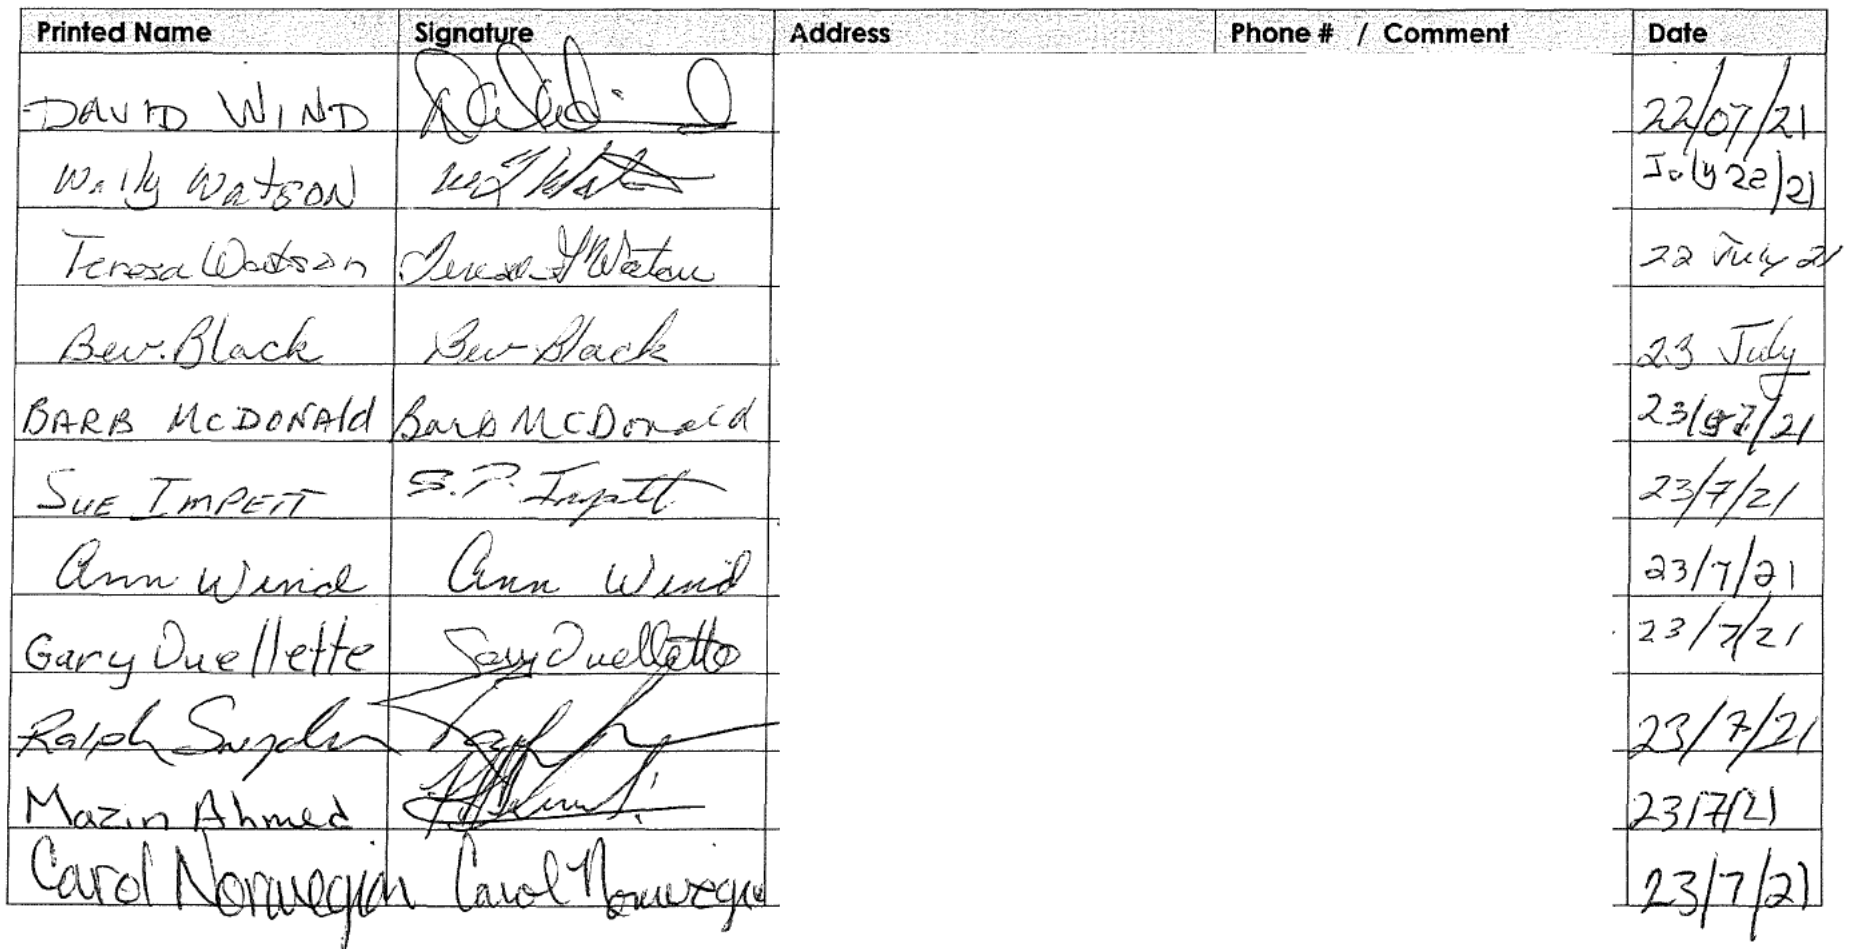 Printed Name Signature Address Phone # / Comment Date
DAVID WIND 22/07/21
Wally Watson July 22/21
Teresa Watson Teresa Y Watson 22 July 21
Bev. Black Bev Black 23 July
BARB McDONAld Barb McDonald 23/07/21
SUE IMPETT S.P. Impett 23/7/21
Ann Wind Ann Wind 23/7/21
Gary Ouellette Gary Ouellette 23/7/21
Ralph Snyder 23/7/21
Mazin Ahmed 23/7/21
Carol Norwegian Carol Norwegian 23/7/21